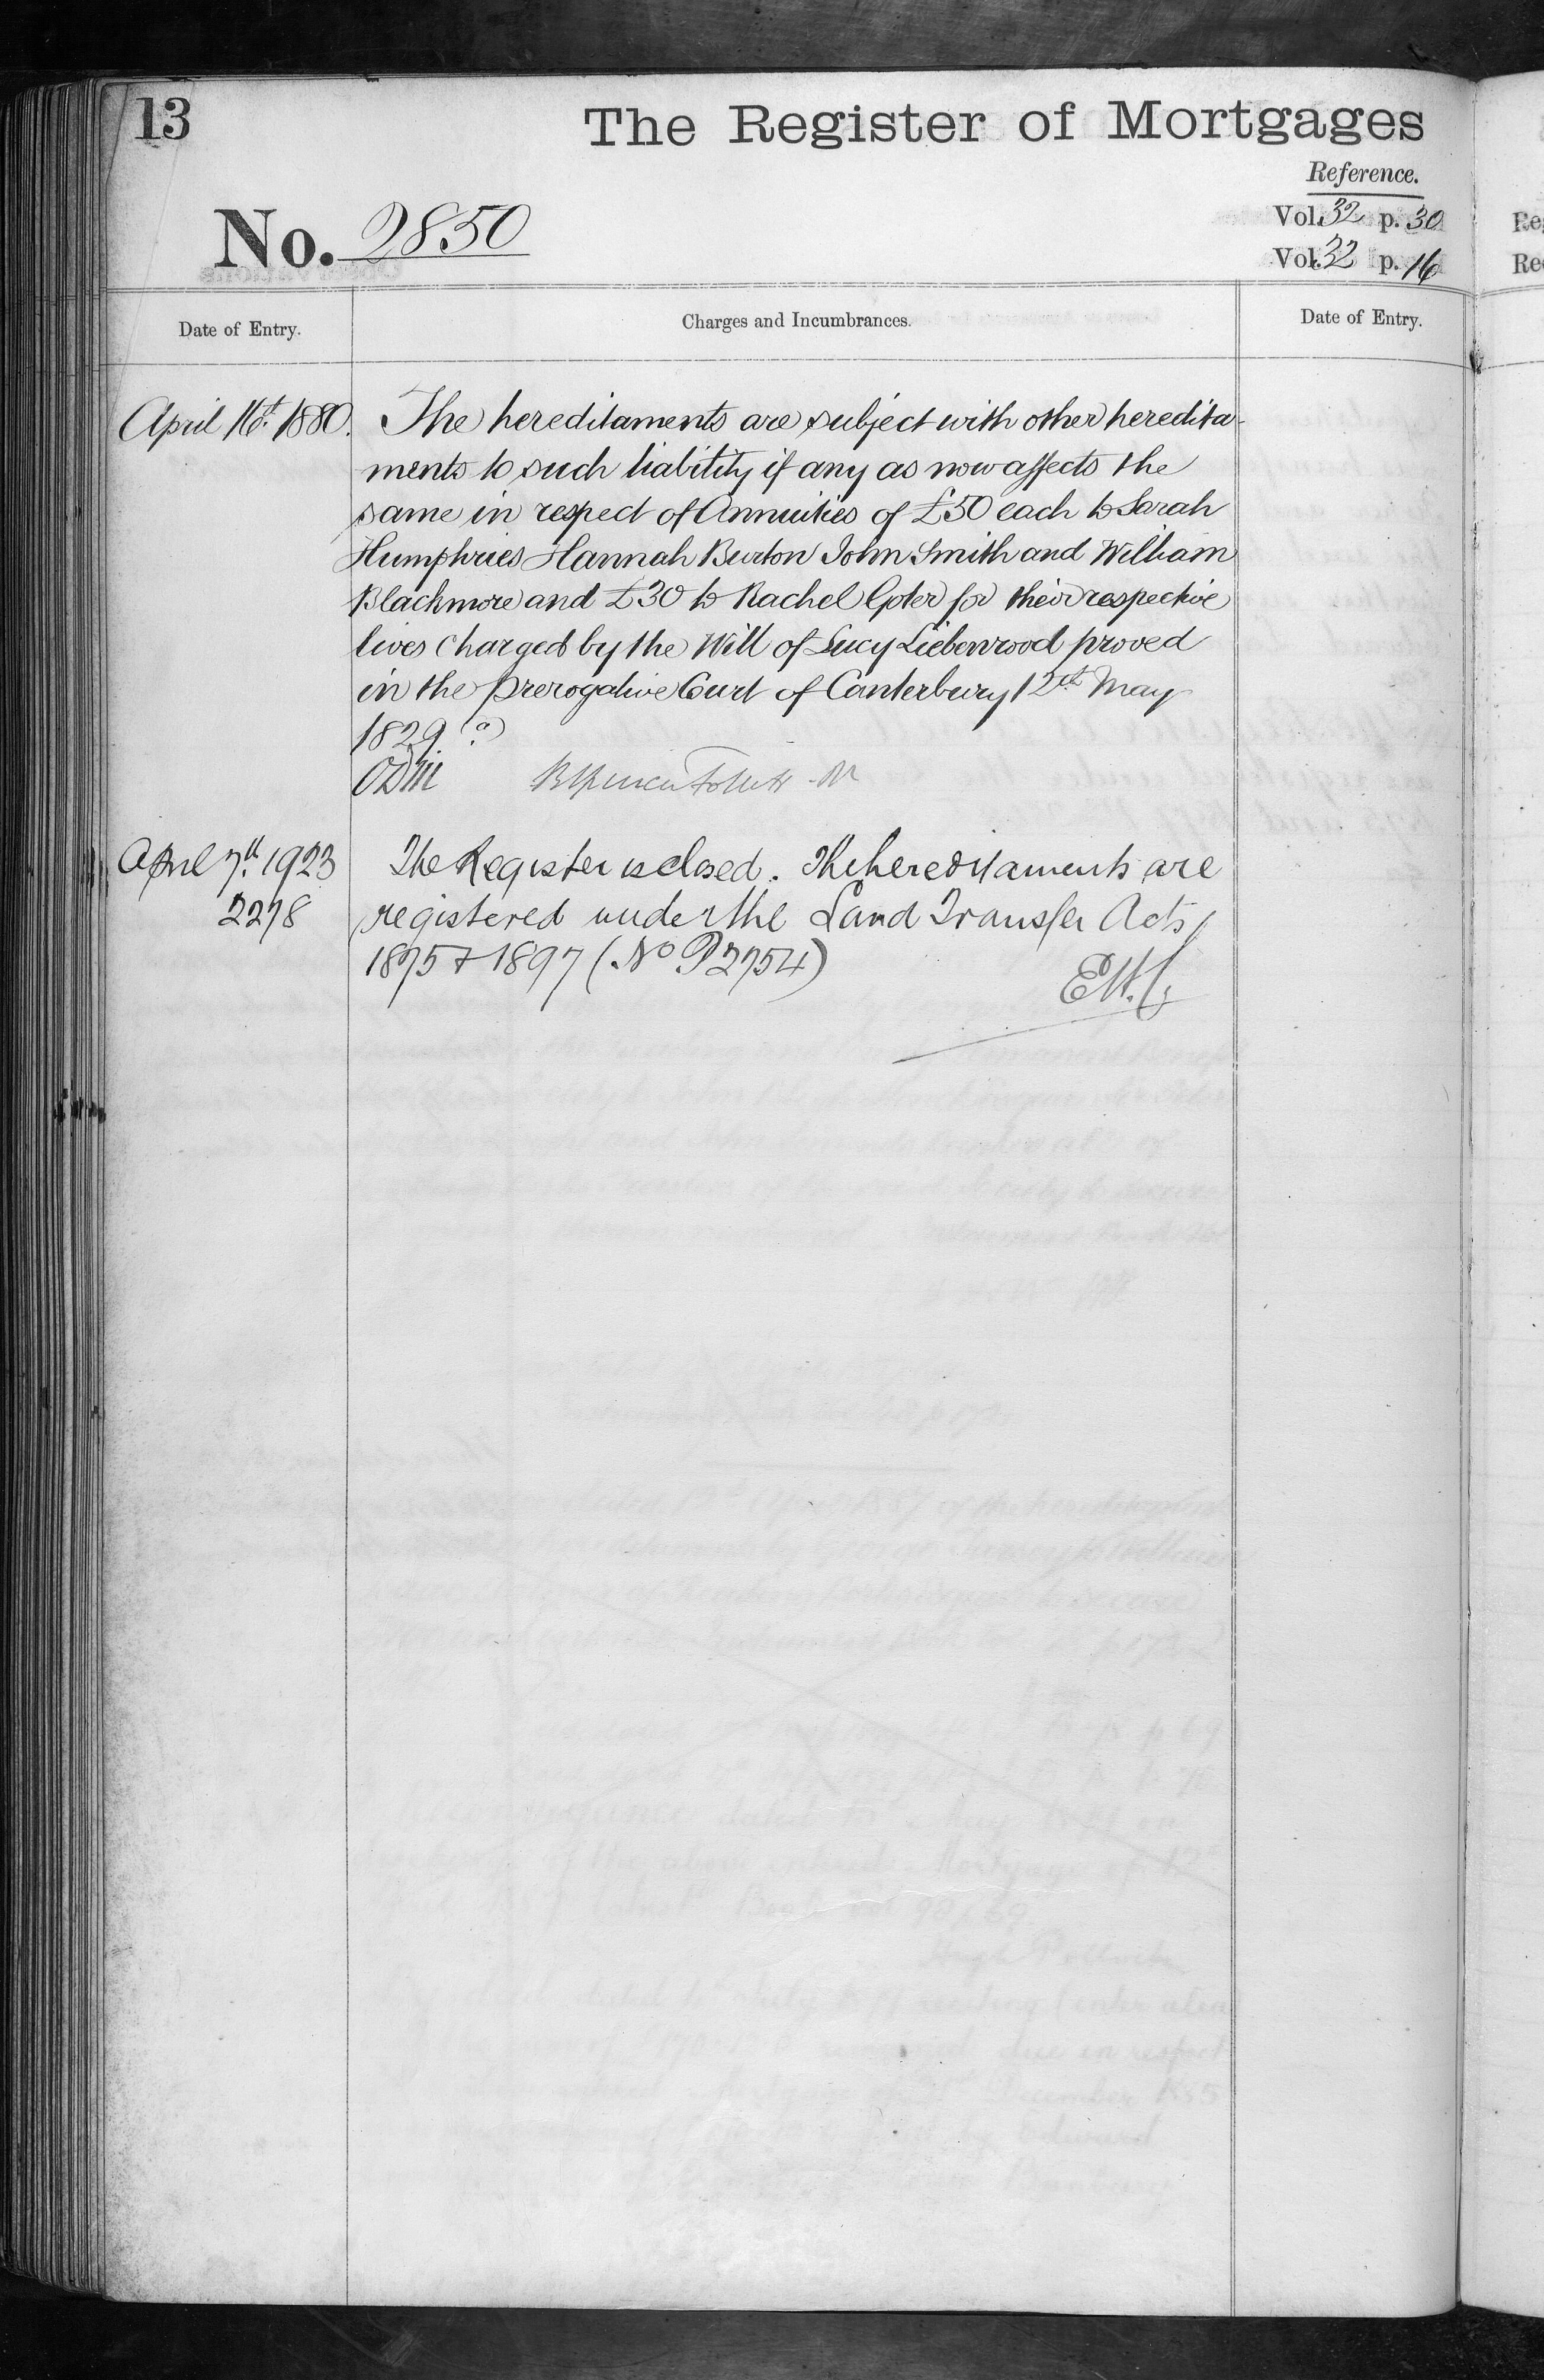 13
The Register of Mortgages
Reference.
No. 2850
Vol. 32 p. 30
Vol. 32 p. 16
Date of Entry.
Charges and Incumbrances.
Date of Entry.
April 16th 1880.
The hereditaments are subject with other heredita-
ments to such liability if any as now affects the
same in respect of Annuities of £50 each to Sarah
Humphries Hannah Burton John Smith and William
Blackmore and £30 to Rachel for their respective
lives charged by the Will of Lucy Liebenrood proved
in the Prerogative Court of Canterbury 12th May
1829
April 7th 1923
2278
The Register is closed. The hereditaments are
registered under the Land Transfer Acts,
1875 & 1897 (No P2754)